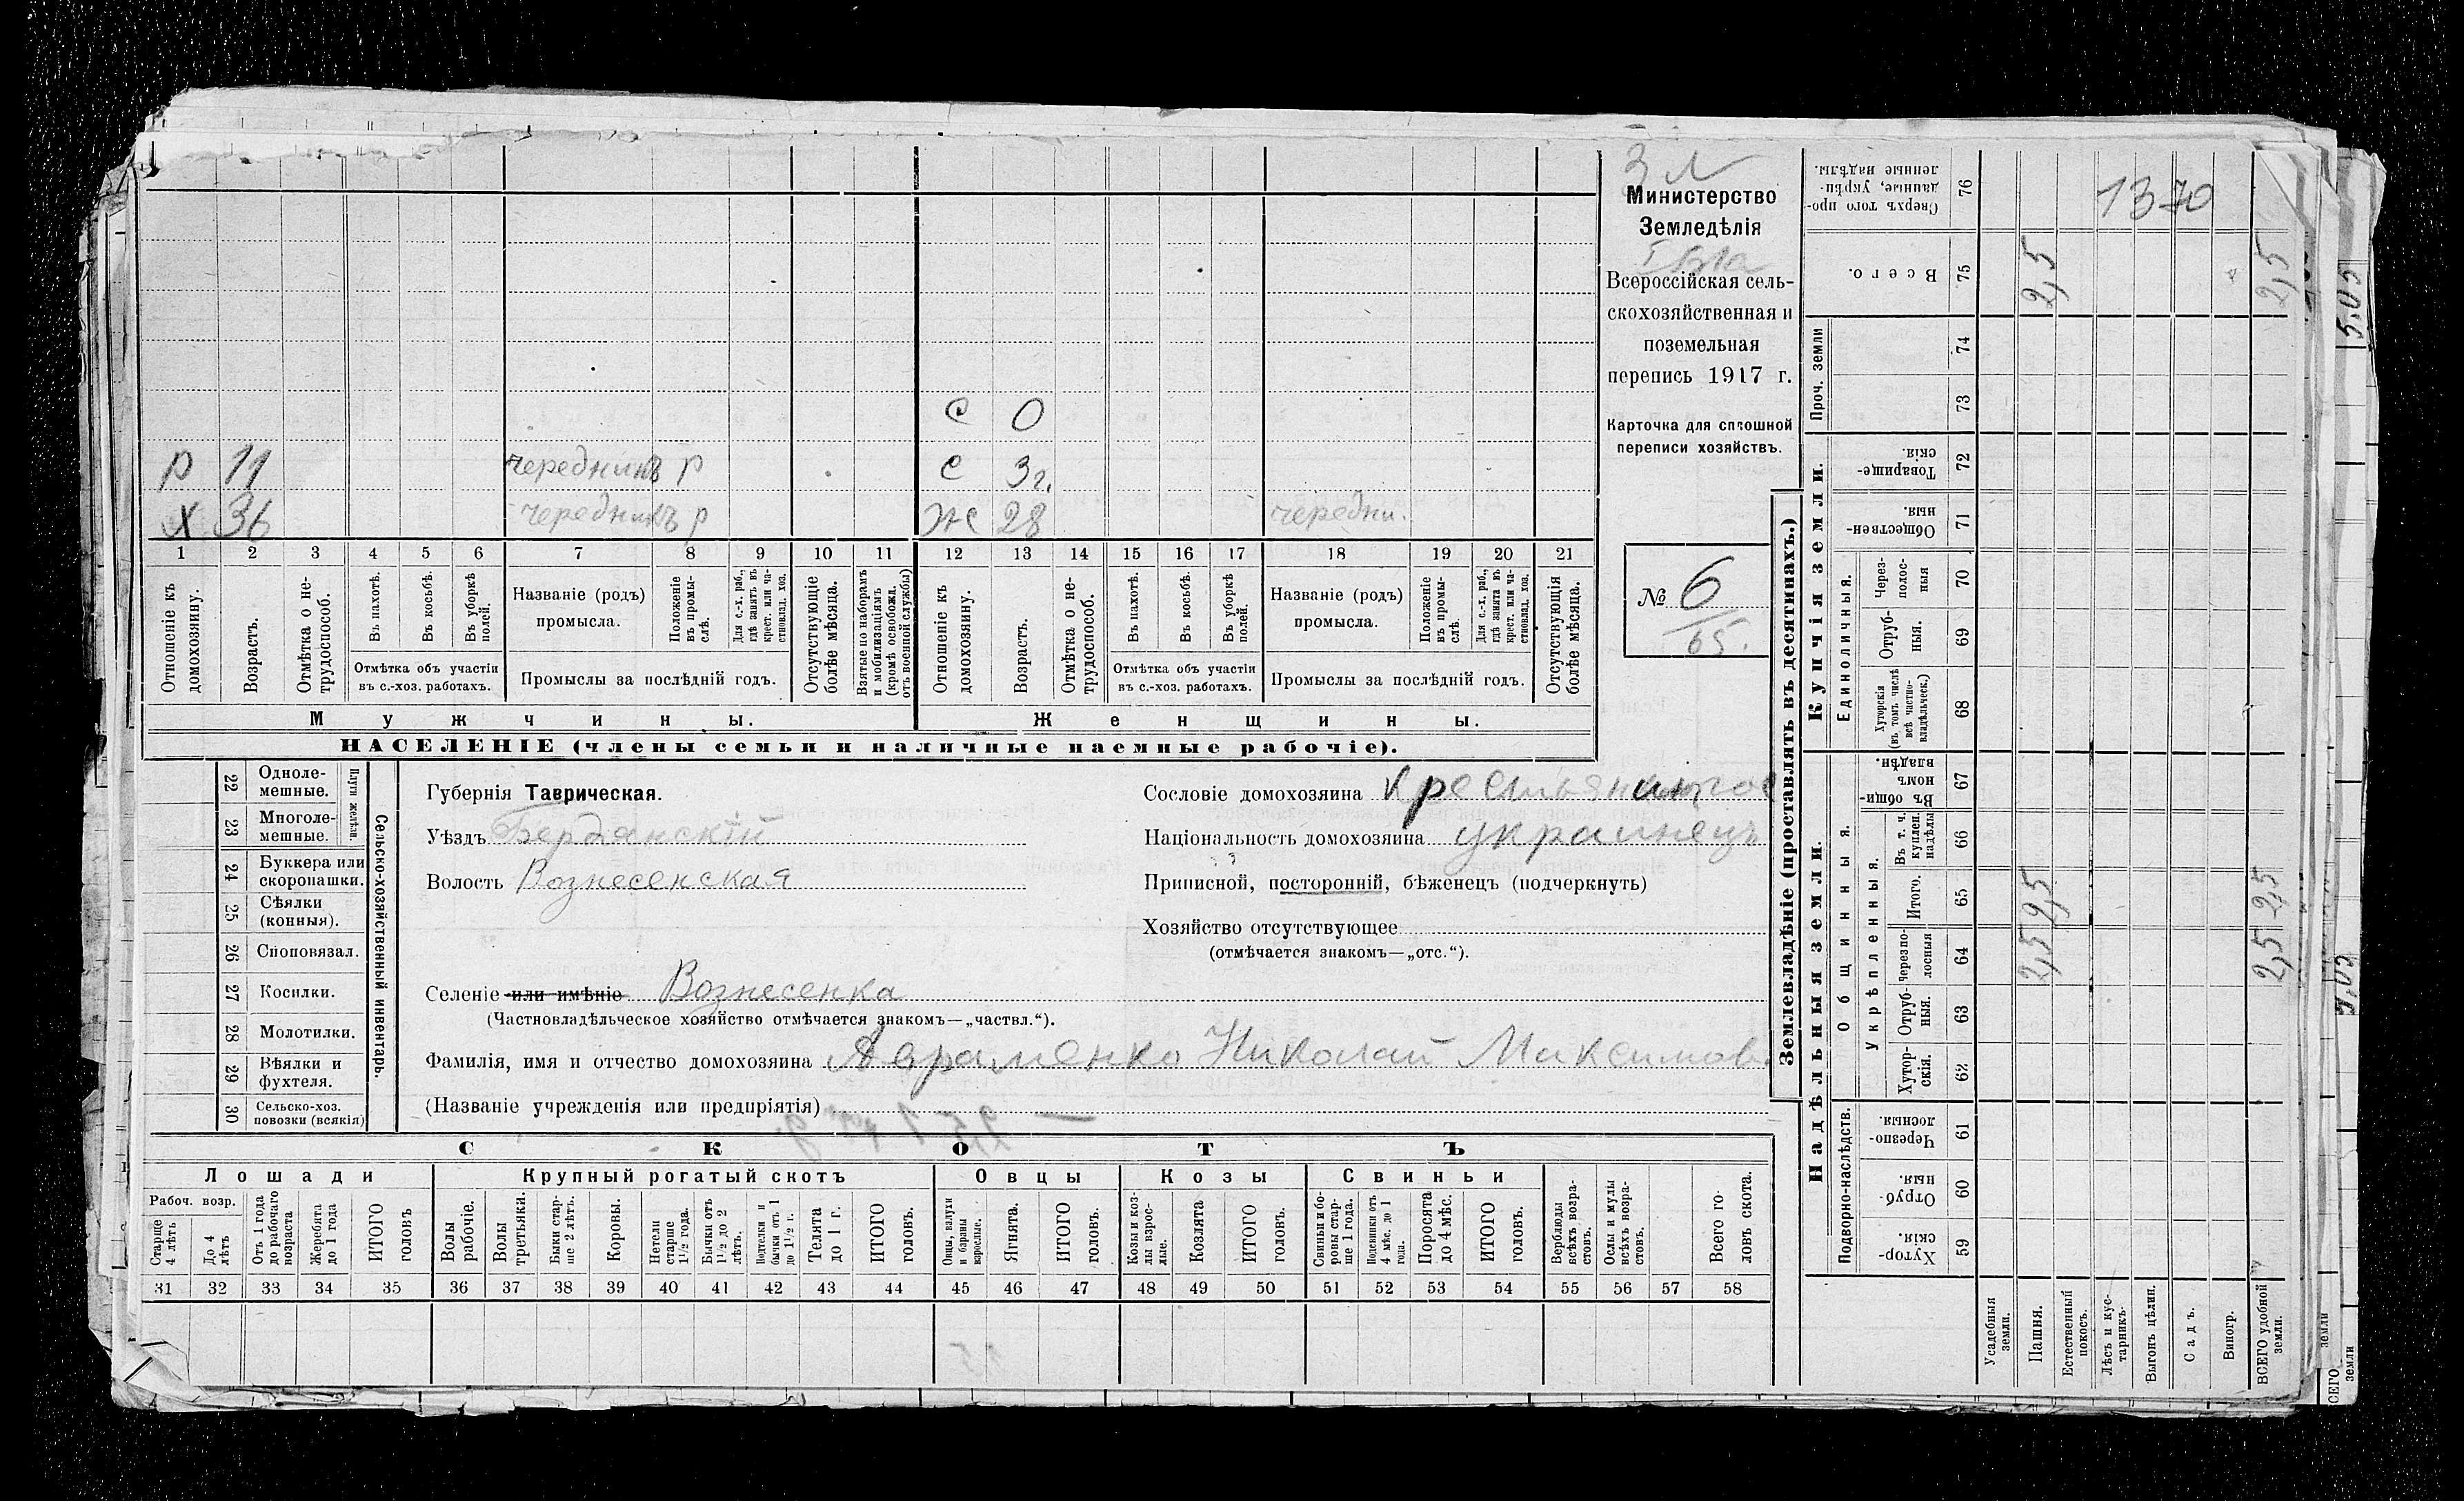 Министерство
Земледѣлія
Всероссійская сель-
скохозяйственная и
поземельная
перепись 1917 г.
Карточка для сплошной
переписи хозяйствъ.
№ 6
65.
С 0
Р 11 чередникъ р С 3 г.
Х 36 чередникъ р Ж 28 чередни.
1 2 3 4 5 6 7 8 9 10 11 12 13 14 15 16 17 18 19 20 21
Отношеніе къ домохозяину.
Возрастъ.
Отмѣтка о не-трудоспособ.
Въ пахотѣ.
Въ косьбѣ.
Въ уборкѣ полей.
Отмѣтка объ участіи въ с.-хоз. работахъ.
Названіе (родъ) промысла.
Положеніе въ промы-слѣ.
Для с.-х. раб., гдѣ занятъ въ крест. или ча-стновлад. хоз.
Промыслы за послѣдній годъ.
Отсутствующіе болѣе мѣсяца.
Взятые по наборамъ и мобилизаціямъ (кромѣ освобожд. отъ военной службы)
Отношеніе къ домохозяину.
Возрастъ.
Отмѣтка о не-трудоспособ.
Въ пахотѣ.
Въ косьбѣ.
Въ уборкѣ полей.
Отмѣтка объ участіи въ с.-хоз. работахъ.
Названіе (родъ) промысла.
Положеніе въ промы-слѣ.
Для с.-х. раб., гдѣ занята въ крест. или ча-стновлад. хоз.
Промыслы за послѣдній годъ.
Отсутствующія болѣе мѣсяца.
Мужчины. Женщины.
НАСЕЛЕНІЕ (члены семьи и наличные наемные рабочіе).
Сельско-хозяйственный инвентарь.
Плуги желѣзн.
22 Одноле-мешные.
23 Многоле-мешные.
24 Буккера или скоропашки.
25 Сѣялки (конныя).
26 Сноповязал.
27 Косилки.
28 Молотилки.
29 Вѣялки и фухтеля.
30 Сельско-хоз. повозки (всякія)
Губернія Таврическая.
Уѣздъ Бердянскій
Волость Вознесенская
Селеніе или имѣніе Вознесенка
(Частновладѣльческое хозяйство отмѣчается знакомъ—„частвл.“).
Фамилія, имя и отчество домохозяина Авраменко Николай Максимов.
(Названіе учрежденія или предпріятія)
Сословіе домохозяина
Національность домохозяина украинецъ
Приписной, посторонній, бѣженецъ (подчеркнуть)
Хозяйство отсутствующее
(отмѣчается знакомъ—„отс.“).
СКОТЪ
Лошади Крупный рогатый скотъ Овцы Козы Свиньи
Рабоч. возр.
Старше 4 лѣтъ
До 4 лѣтъ
Отъ 1 года до рабочаго возраста
Жеребята до 1 года
ИТОГО головъ
Волы рабочіе.
Волы третьяки.
Быки стар-ше 2 лѣтъ.
Коровы.
Нетели старше 1½ года.
Бычки отъ 1½ до 2 лѣтъ.
Подтелки и бычки отъ 1 до 1½ г.
Телята до 1 г.
ИТОГО головъ.
Овцы, валухи и бараны взрослые.
Ягнята.
ИТОГО головъ.
Козы и коз-лы взрос-лые.
Козлята
ИТОГО головъ.
Свиньи и бо-ровы стар-ше 1 года.
Подсвинки отъ 4 мѣс. до 1 года.
Поросята до 4 мѣс.
ИТОГО головъ.
Верблюды всѣхъ возра-стовъ.
Ослы и мулы всѣхъ возра-стовъ.
Всего го-ловъ скота.
31 32 33 34 35 36 37 38 39 40 41 42 43 44 45 46 47 48 49 50 51 52 53 54 55 56 57 58
Землевладѣніе (проставлять въ десятинахъ.)
Надѣльныя земли.
Купчія земли.
Проч. земли
Подворно-наслѣдств.
Общинныя.
Укрѣпленныя.
Единоличныя.
Сверхъ того про-данные, укрѣп-ленные надѣлы. 76 1370
Всего. 75 2,5 2,5
74
73
Товарище-скія. 72
Обществен-ныя. 71
Через-полос-ныя 70
Отруб-ныя. 69
Хуторскія (въ томъ числѣ всѣ частно-владѣльческ.) 68
Въ общин-номъ владѣн. 67
Въ т. ч. куплен. надѣлы 66
Итого. 65 2,5 2,5
Черезпо-лосныя 64 2,5 2,5
Отруб-ныя. 63
Хутор-скія. 62
Черезпо-лосныя. 61
Отруб-ныя. 60
Хутор-скія. 59
Усадебныя земли.
Пашня.
Естественный покосъ.
Лѣсъ и кус-тарникъ.
Выгонъ цѣлин.
Садъ.
Виногр.
ВСЕГО удобной земли.
5,05